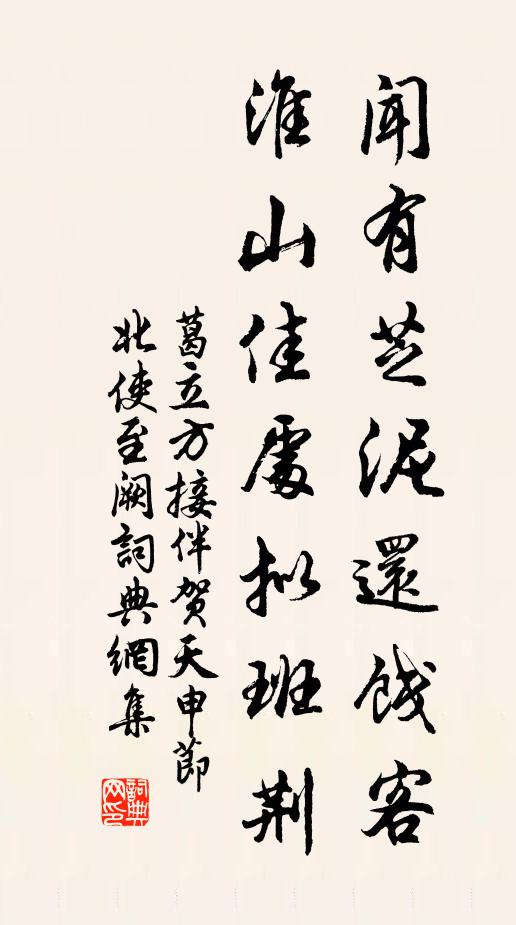 聞有芝泥還餞客
淮山佳處擬班荆
葛立方接伴贺天申節
北使至阙詞典網集
詞典网印